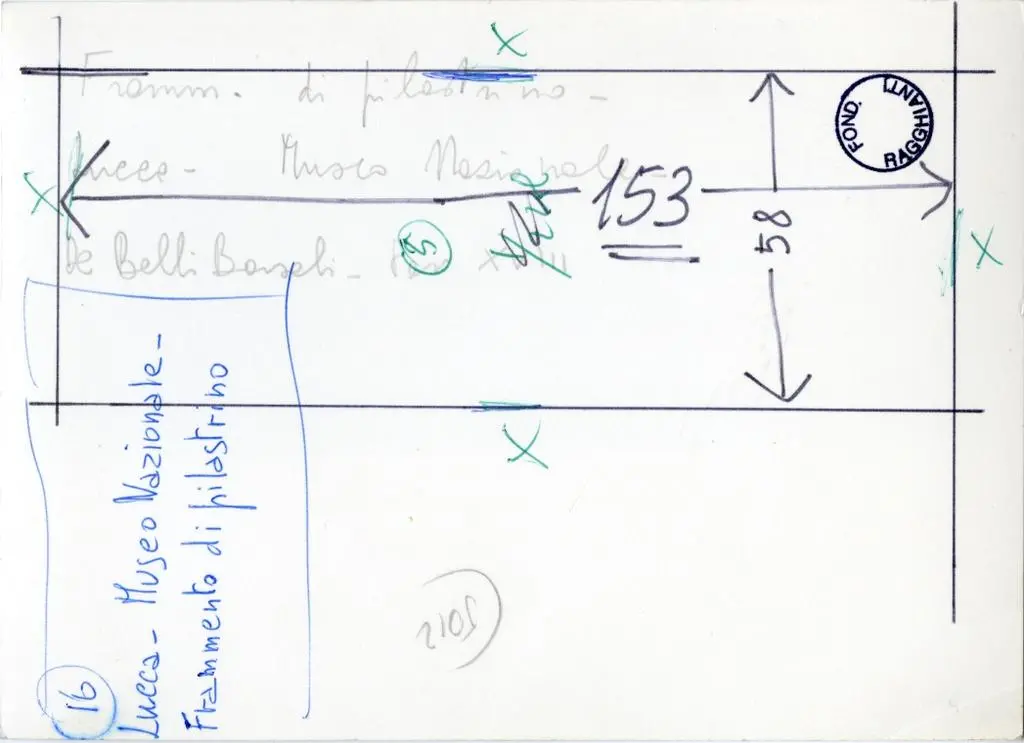 Framm. di pilastrino -
Lucca - Museo Nazionale -
De Belli Barsali -
153
58
5
FOND. RAGGHIANTI
Lucca - Museo Nazionale -
Frammento di pilastrino
16